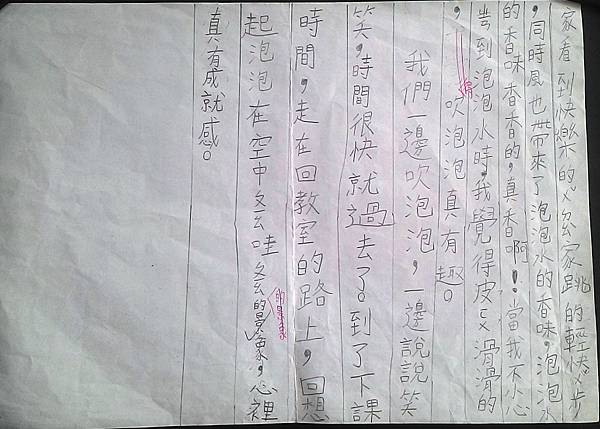 家看到快樂的家跳的輕快步
，同時風也帶來了泡泡水的香味，泡泡水
的香味香香的，真香啊！當我不小心
到泡泡水時，我覺得皮ㄈㄨ滑滑的
，吹泡泡真有趣。
我們一邊吹泡泡，一邊說說笑
笑，時間很快就過去了。到了下課
時間，走在回教室的路上，回想
起泡泡在空中ㄠ哇ㄠ的景象，心裡
的景象
真有成就感。